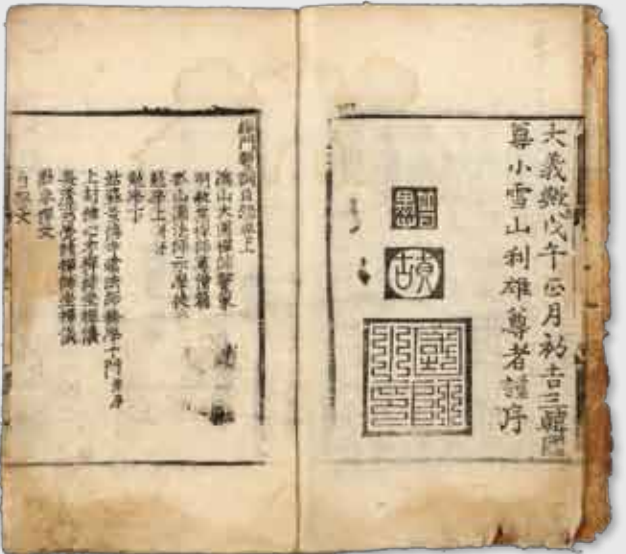 大義歟戊午正月初吉三韓國
尊小雪山利雄尊者謹序
緇門警訓目錄卷上
溈山大圓禪師警策
明教嵩禪師尊僧篇
孤山圓法師示學徒
勉學上并序
勉學下
姑蘇景德寺雲法師務學十門并序
上封佛心才禪師坐禪儀
長蘆慈覺賾禪師坐禪儀
勸參禪文
自警文